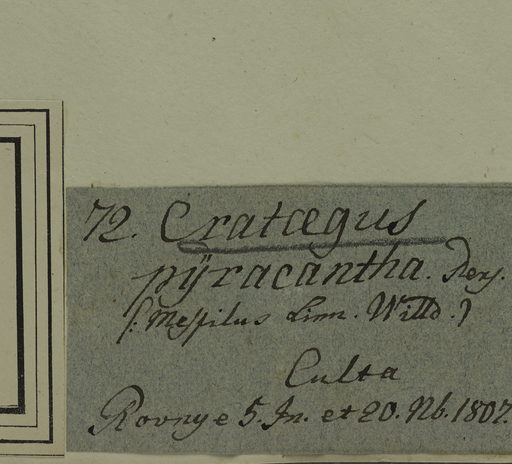 72. Cratægus
pÿracantha. Pers.
(: Mespilus Linn. Willd.)
Culta
Rovnye 5. Jn. et 20. Nb. 1807.